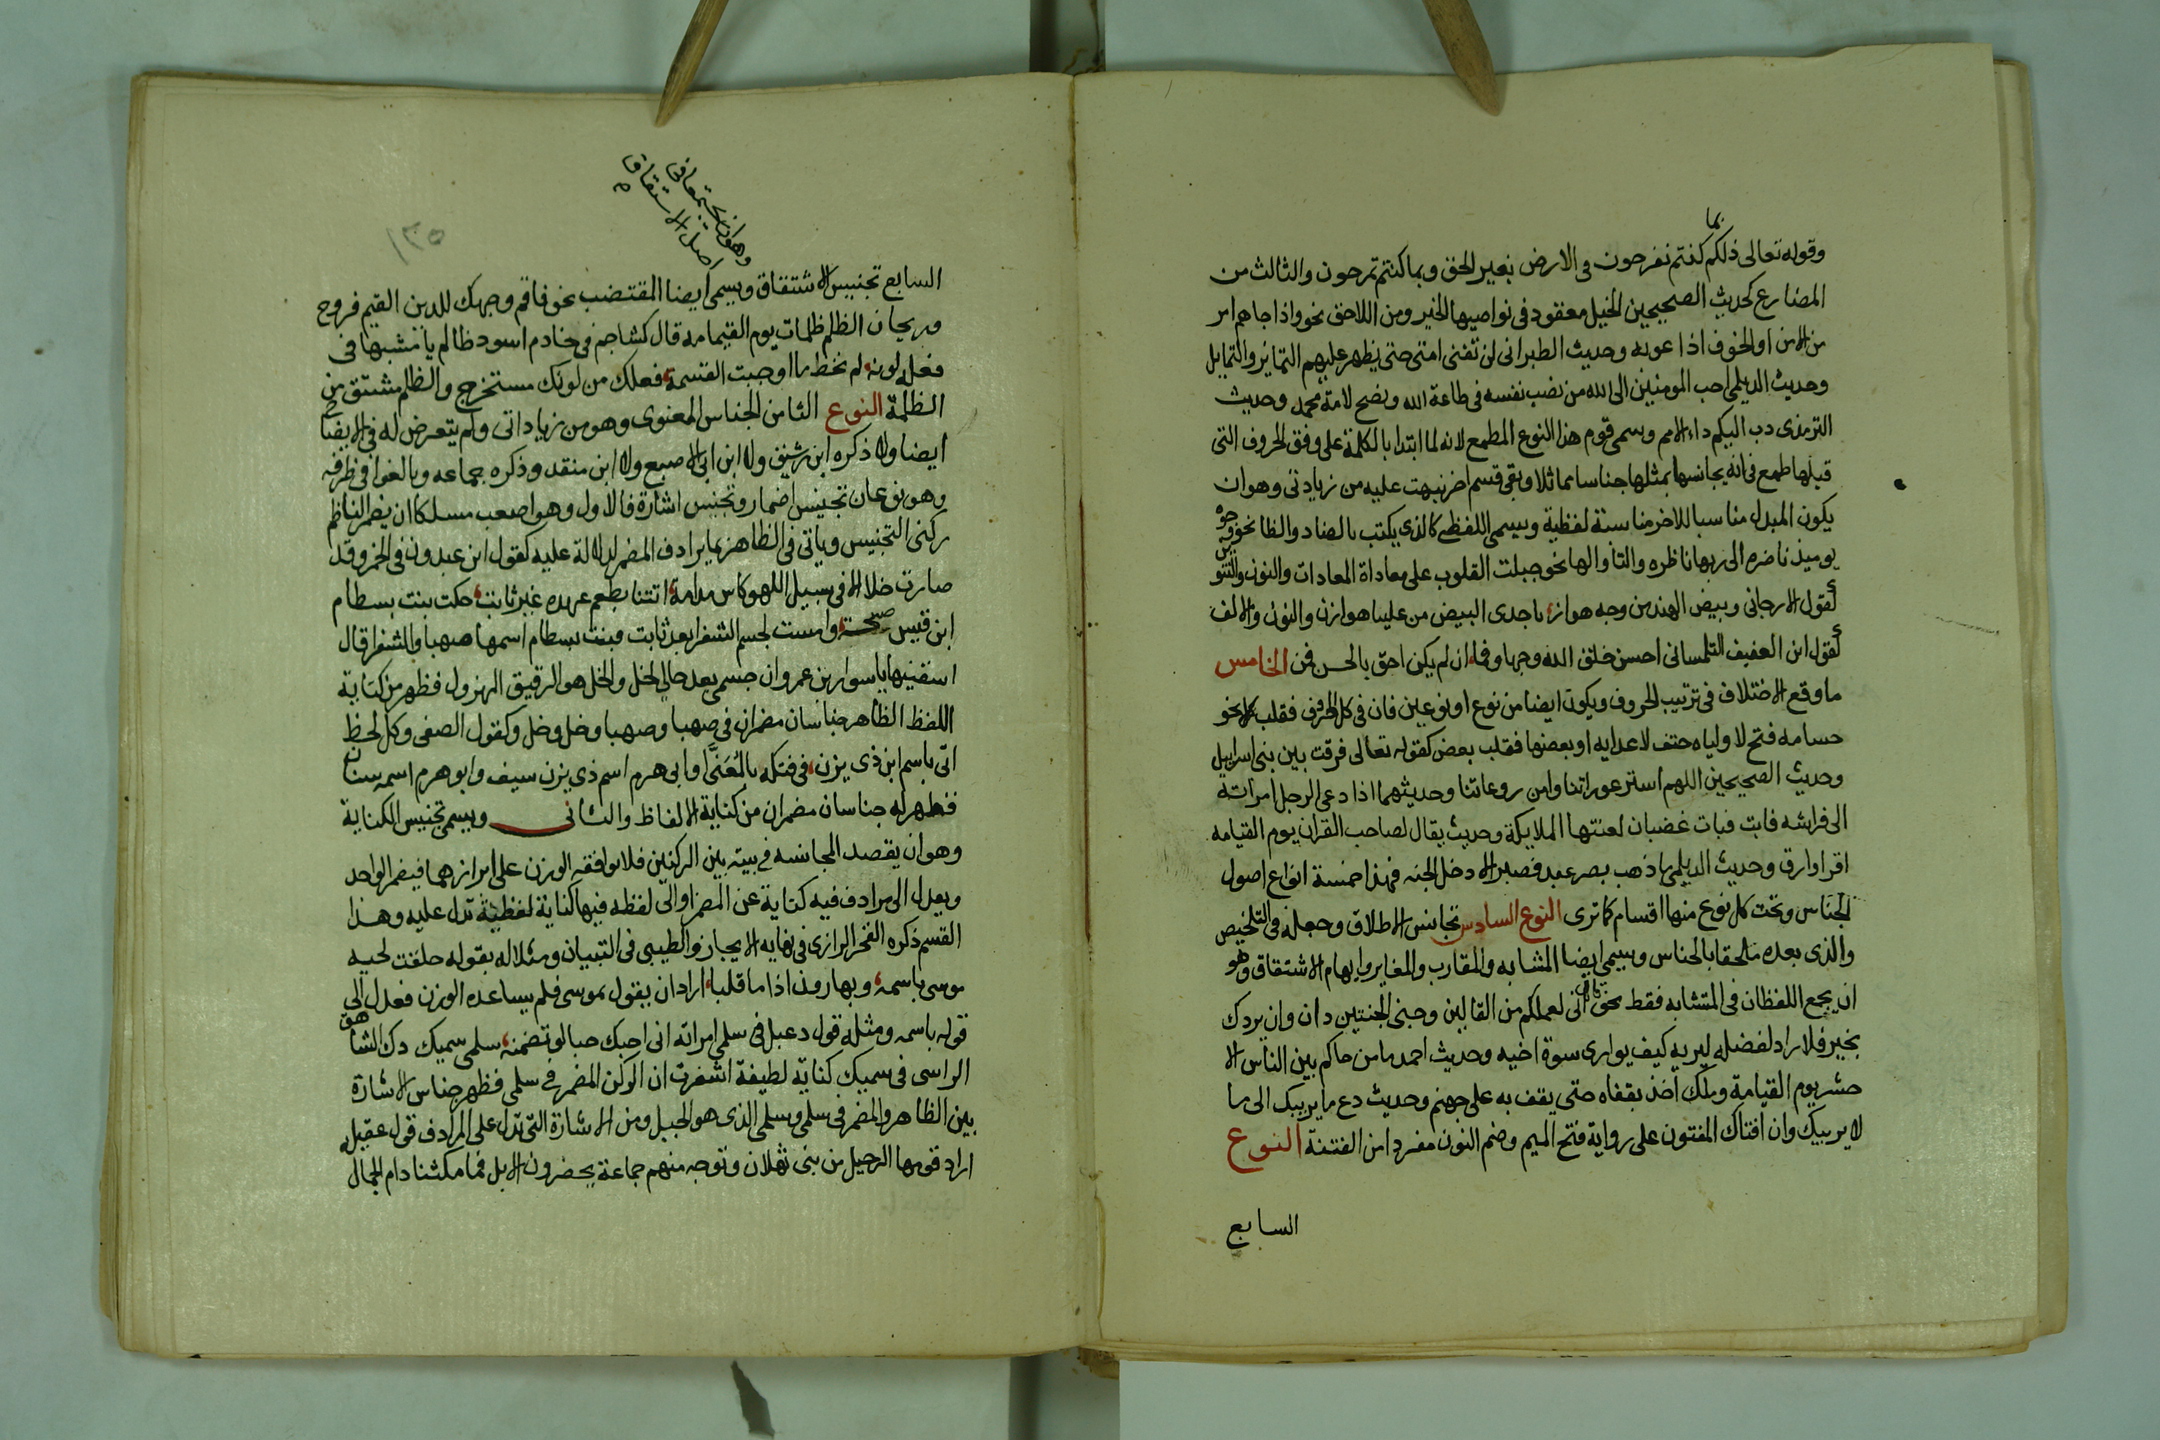 بما
وقوله تعالى ذلكم كنتم تفرحون فى الارض بغير الحق وبما كنتم تمرحون والثالث من
المضارع كحديث الصحيحين الخيل معقود فى نواصيها الخير ومن اللاحق نحو واذا جاهم امر
من الامن او الخوف اذاعوبه وحديث الطبرانى لن تفنى امتى حتى يظهر عليهم التمايز والتمايل
وحديث الديلمى احب المومنين الى الله من نصب نفسه فى طاعة الله ونصح لامة محمد وحديث
الترمذى دب اليكم داء الامم وسمى قوم هذا النوع المطمع لانه لما ابتدا بالكلمة على وفق الحروف التى
قبلها طمع فى انه يجانسها بمثلها جناسا مماثلا وبقى قسم اخر نبهت عليه من زيادتى وهو ان
يكون المبدل مناسبا للاخر مناسبة لفظية ويسمى اللفظى كالذى يكتب بالضاد والظا نحو وجوه
يوميذ ناضره الى ربها ناظره والتا والها نحو جبلت القلوب على معاداة المعادات والنون والتنوين
كقول الارجانى وبيض الهند من وجد هواز باحدى البيض من عليا هوازن والنون والالف
كقول ابن العفيف التلمسانى احسن خلق الله وجها وفما ان لم يكن احق بالحسن فمن الخامس
ما وقع الاختلاف فى ترتيب الحروف ويكون ايضا من نوع او نوعين فان فى كل الحروف فقلب كل نحو
حسامه فتح لاوليايه حتف لاعدايه او بعضها فقلب بعض كقوله تعالى فرقت بين بنى اسراييل
وحديث الصحيحين اللهم استر عوراتنا وامن روعاتنا وحديثهما اذا دعى الرجل امراته
الى فراشه فابت فبات غضبان لعنتها الملايكة وحديث يقال لصاحب القران يوم القيامه
اقرا وارق وحديث الديلمى ما ذهب بصر عبد فصبر الا دخل الجنه فهذا خمسة انواع اصول
الجناس وتحت كل نوع منها اقسام كما ترى النوع السادس تجانس الاطلاق وجعله فى التلخيص
والذى بعده ملحقا بالجناس ويسمى ايضا المشابه والمقارب والمغاير وايهام الاشتقاق وهو
ان يجمع اللفظان فى المتشابه فقط نحو قال انى لعملكم من القالين وجنى الجنتين دان وان يردك
بخير فلا راد لفضله ليريه كيف يوارى سوة اخيه وحديث احمد ما من حاكم بين الناس الا
حشر يوم القيامة وملك اخذ بقفاه حتى يقف به على جهنم وحديث دع ما يريبك الى ما
لا يريبك وان افتاك المفتون على رواية فتح الميم وضم النون مفردا من الفتنة النوع
السابع
وهو ان يجتمعا فى
اصل الاشتقاق
١٣٥
السابع تجنيس الاشتقاق ويسمى ايضا المقتضب نحو فاقم وجهك للدين القيم فروح
وريحان الظلم ظلمات يوم القيامه قال كشاجم فى خادم اسود ظالم يا مشبها فى
فعله لونه لم تخط ما اوجبت القسمة فعلك من لونك مستخرج والظلم مشتق من
الظلمة النوع الثامن الجناس المعنوى وهو من زياداتى ولم يتعرض له فى الايضاح
ايضا ولا ذكره ابن رشيق ولا ابن ابى الاصبع ولا ابن منقد وذكره جماعه وبالغوا فى ظرفه
وهو نوعان تجنيس اضمار وتجنيس اشارة فالاول وهو اصعب مسلكا ان يضمر الناظم
ركنى التجنيس وياتى فى الظاهر بما يرادف المضمر للدلالة عليه كقول ابن عبدون فى الخمر وقد
صارت خلا الا فى سبيل اللهو كاس مدامة اتتنا بطعم عهده غير ثابت حكت بنت بسطام
ابن قيس صبحة وامست لجسم الشنفرا بعد ثابت فبنت بسطام اسمها صهبا والشنفرا قال
اسقنيها يا سوار بن عمرو ان جسمى بعد خالى لخل والخل هو الرقيق المهزول فظهر من كناية
اللفظ الظاهر جناسان مضمران فى صهبا وصهبا وخل وخل وكقول الصفى وكل لحظ
اتى باسم ابن ذى يزن فى فتكه بالمعنى او ابى هرم اسم ذى يزن سيف وابو هرم اسمه سنان
فظهر له جناسان مضمران من كناية الالفاظ والثانى ويسمى تجنيس الكناية
وهو ان يقصد المجانسه فى بيته بين الركنين فلا يوافقه الوزن على ابرازهما فيضمر الواحد
ويعدل الى مرادف فيه كناية عن المضمر او الى لفظه فيها كناية لفظية تدل عليه وهذا
القسم ذكره الفخر الرازى فى نهايه الايجاز والطيبى فى التبيان ومثلا له بقوله حلقت لحيه
موسى باسمه وبهارون اذا ما قلبا اراد ان يقول بموسى فلم يساعده الوزن فعدل الى
قوله باسمه ومثله قول دعبل فى سلمى امراته انى احبك حبا لو تضمنه سلمى سميك دك الشاهق
الراسى فى سميك كناية لطيفة اشعرت ان الركن المضمر فى سلمى فظهر جناس الاشارة
بين الظاهر والمضمر فى سلمى وسلمى الذى هو الجبل ومن الاشارة التى تدل على المرادف قول عقيله
اراد قومها الرحيل من بنى ثهلان وتوجه منهم جماعة يحضرون الابل فما مكثنا دام الجمال